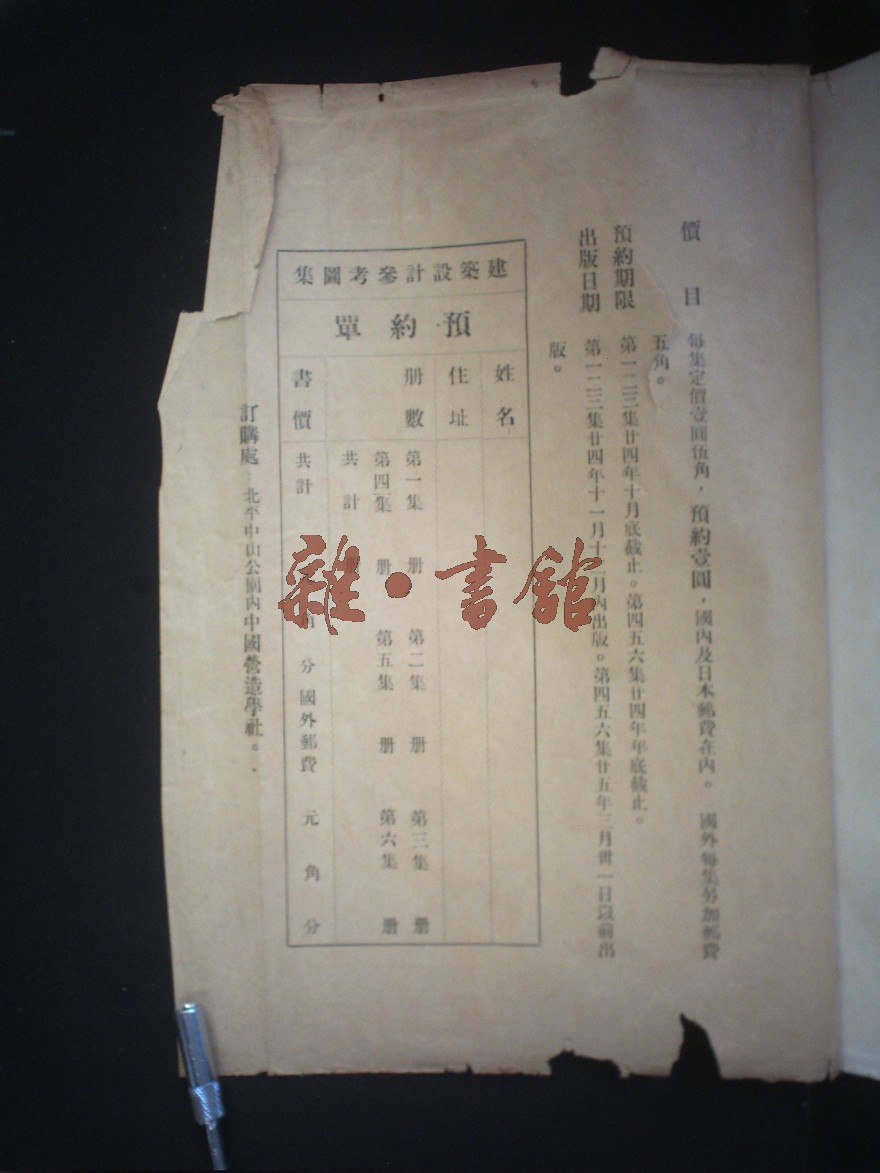 價目 每集定價壹圓伍角，預約壹圓，國內及日本郵費在內。 國外每集另加郵費
五角。
預約期限 第一二三集廿四年十月底截止。第四五六集廿四年年底截止。
出版日期 第一二三集廿四年十一月十二月內出版。第四五六集廿五年三月卅一日以前出
版。
建築設計參考圖集
預約單
姓名
住址
册數 第一集 册 第二集 册 第三集 册
第四集 册 第五集 册 第六集 册
共計 册
書價 共計 角 分 國外郵費 元 角 分
訂購處 北平中山公園內中國營造學社。
雜·書館